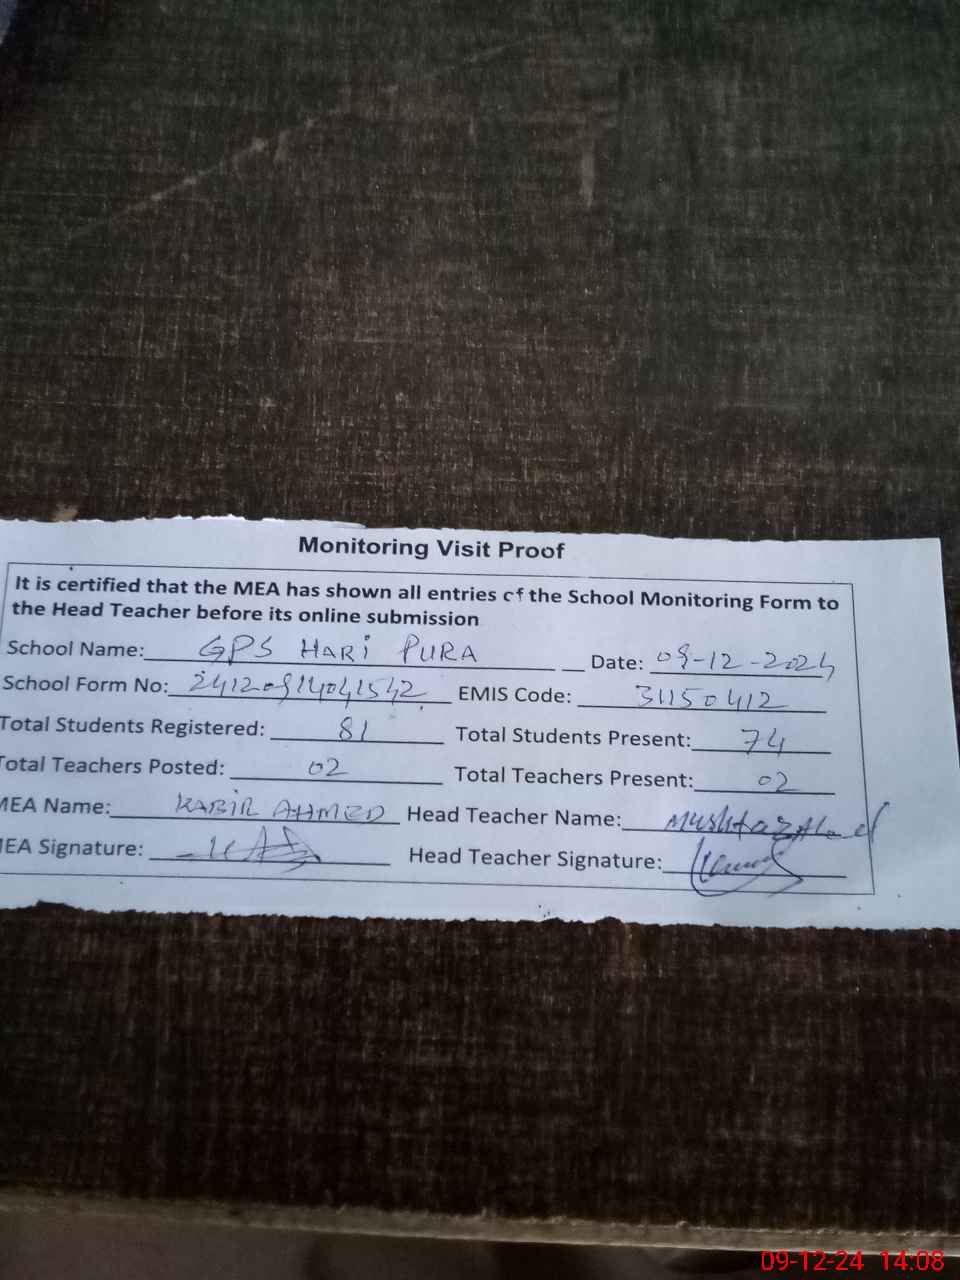 Monitoring Visit Proof
It is certified that the MEA has shown all entries of the School Monitoring Form to
the Head Teacher before its online submission
School Name: GPS HARI PURA Date: 09-12-2024
School Form No: 24120914041542 EMIS Code: 31150412
Total Students Registered: 81 Total Students Present: 74
Total Teachers Posted: 02 Total Teachers Present: 02
MEA Name: KABIR AHMED Head Teacher Name: Mushtaq Ahmed
MEA Signature: Head Teacher Signature:
09-12-24 14:08